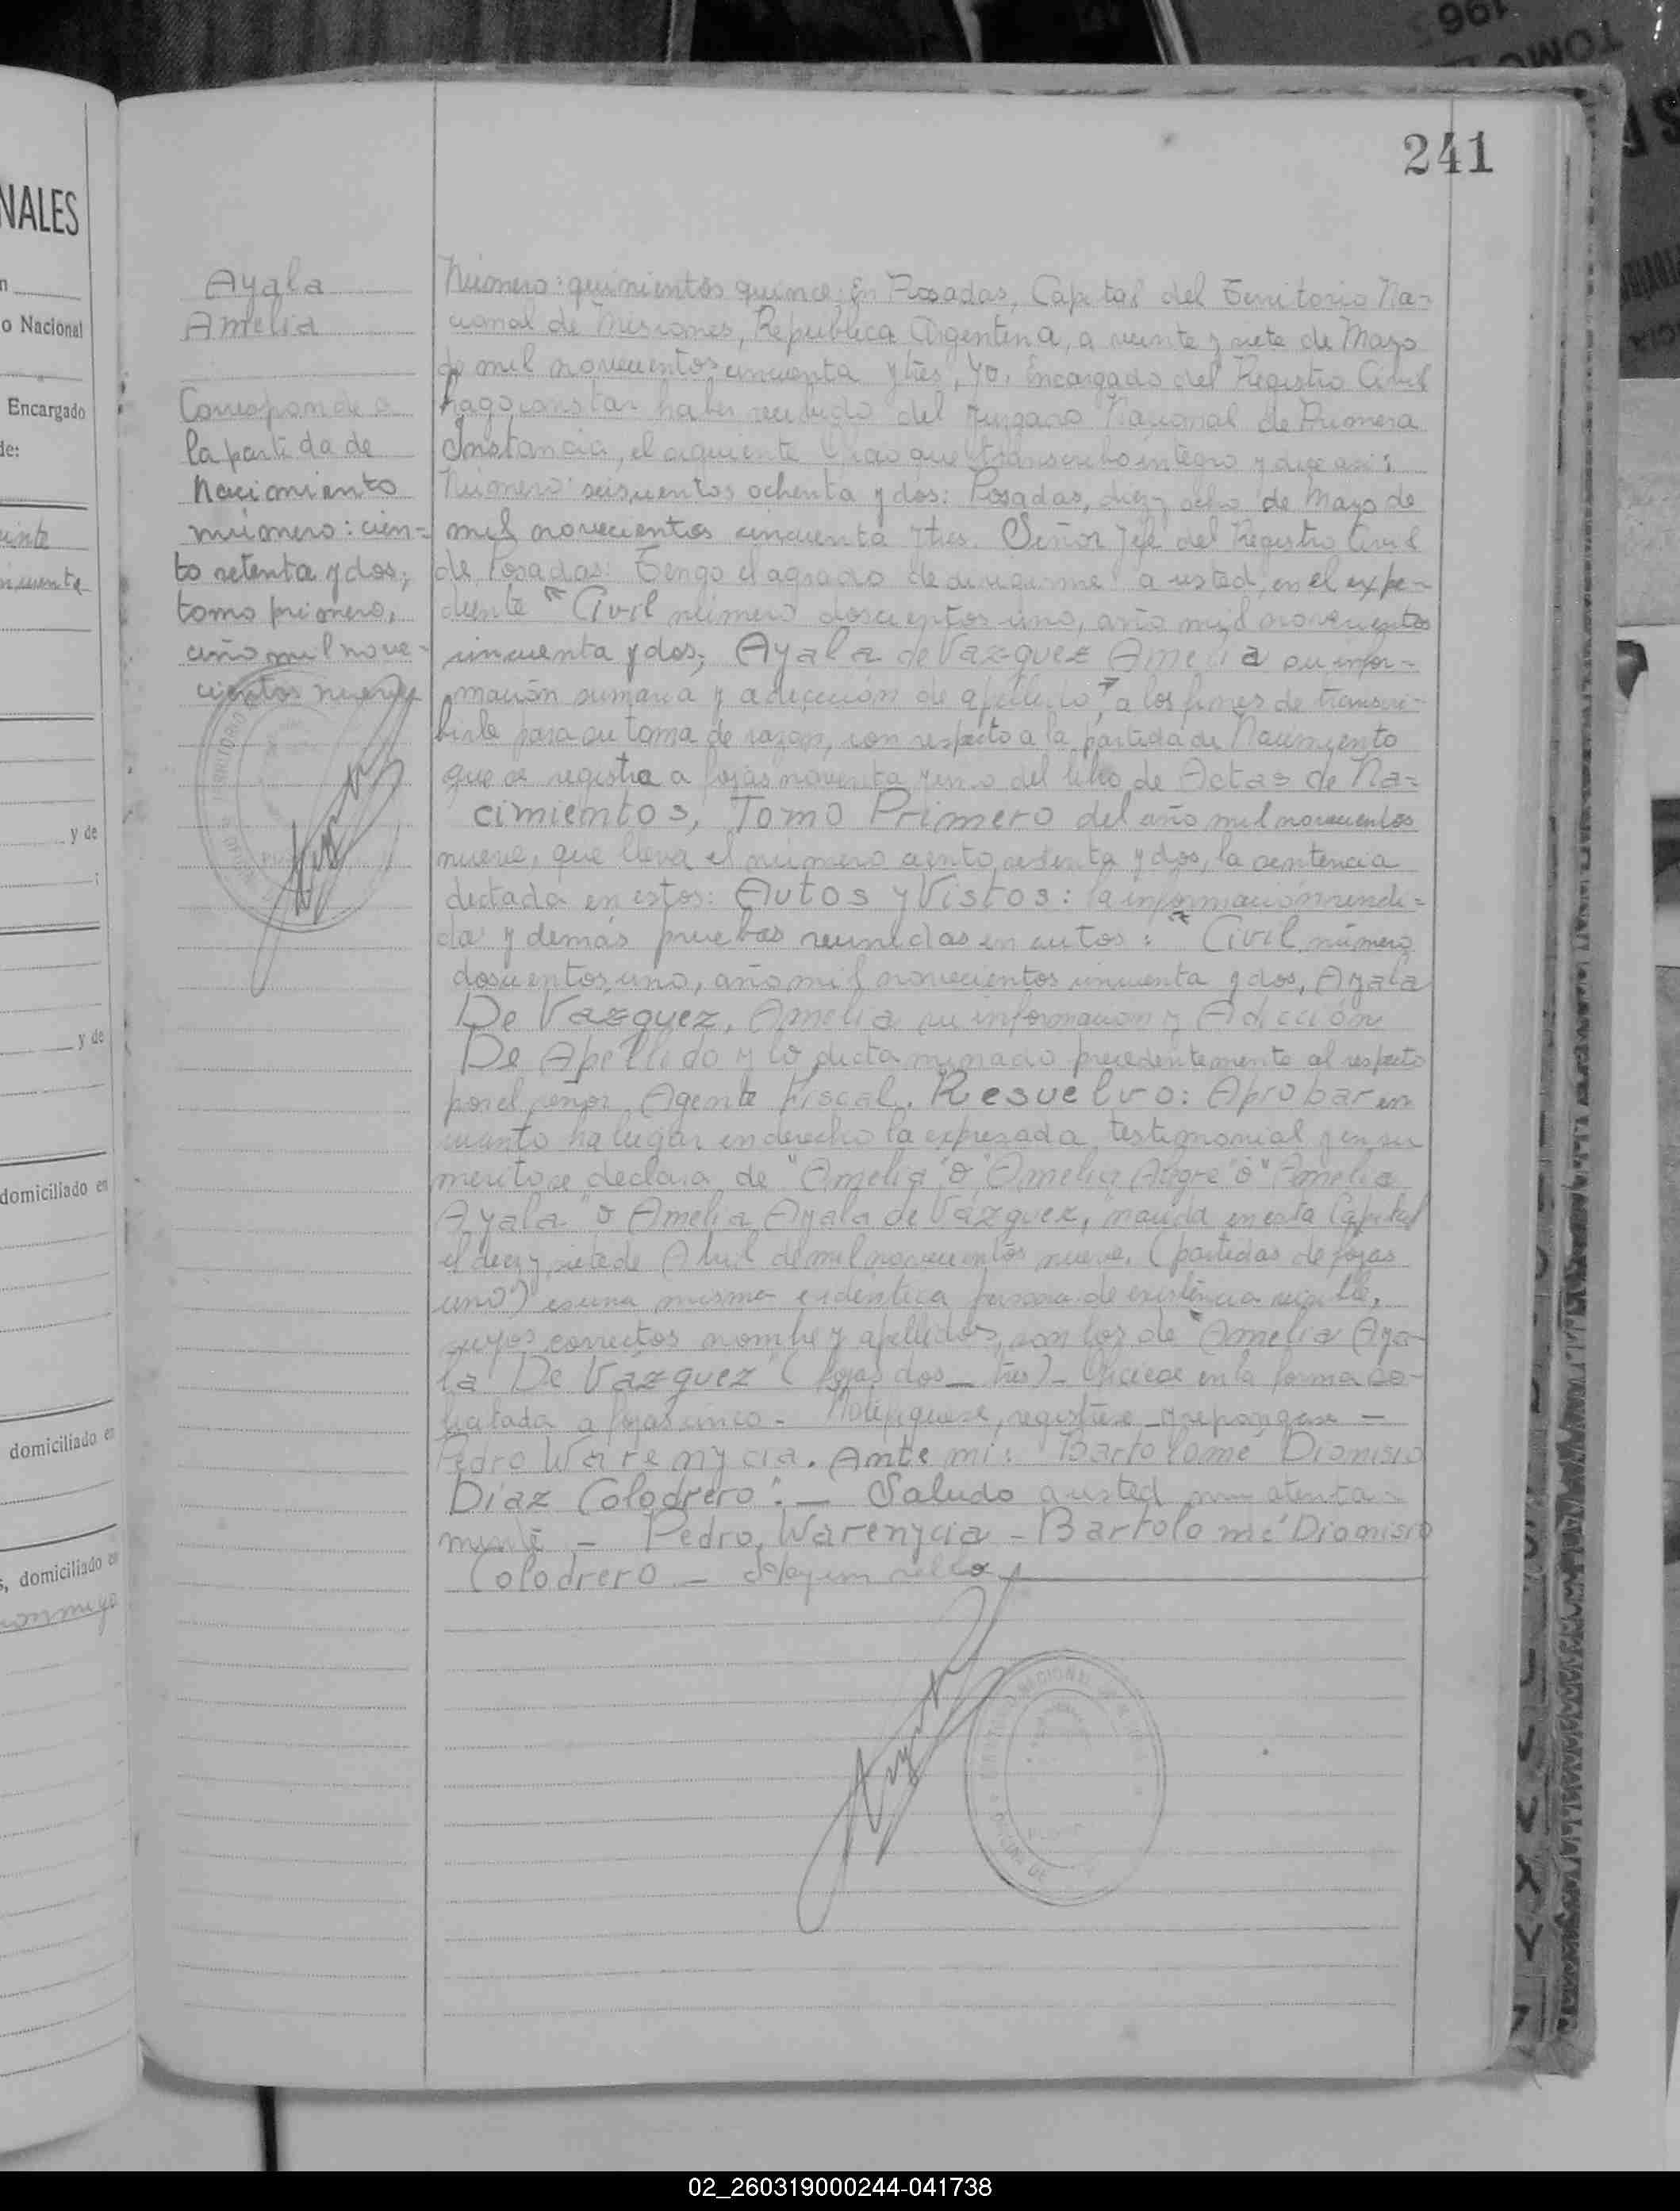 196
TOMO
241
NALES
o Nacional
Encargado
de:
y de
y de
domiciliado en
domiciliado en
s, domiciliado en
conmigo
Ayala
Amelia
Corresponde a
la partida de
Nacimiento
número: cien-
to setenta y dos,
tomo primero,
año mil nove-
cientos nueve
Número: quinientos quince: En Posadas, Capital del Territorio Na-
cional de Misiones, República Argentina, a veinte y siete de Mayo
de mil novecientos cincuenta y tres, yo, Encargado del Registro Civil
hago constar haber recibido del Juzgado Nacional de Primera
Instancia, el siguiente Oficio que transcribo íntegro y dice así:
Número seiscientos ochenta y dos: Posadas, diez y ocho de Mayo de
mil novecientos cincuenta y tres. Señor Jefe del Registro Civil
de Posadas: Tengo el agrado de dirigirme a usted, en el expe-
diente "Civil número doscientos uno, año mil novecientos
cincuenta y dos; Ayala de Vazquez Amelia su infor-
mación sumaria y adección de apellido", a los fines de transcri-
birle para su toma de razon, con respecto a la partida de Nacimiento
que se registra a fojas noventa y uno del libro de Actas de Na-
cimientos, Tomo Primero del año mil novecientos
nueve, que lleva el número ciento setenta y dos, la sentencia
dictada en estos: Autos y Vistos: la información rendi-
da y demás pruebas reunidas en autos: "Civil número
doscientos uno, año mil novecientos cincuenta y dos, Ayala
De Vazquez, Amelia su información y Adicción
De Apellido y lo dictaminado precedentemente al respecto
por el señor Agente Fiscal. Resuelvo: Aprobar en
cuanto ha lugar en derecho la expresada testimonial y en su
merito se declara de "Amelia" ó "Amelia Alegre" ó "Amelia
Ayala" ó Amelia Ayala de Vázquez, nacida en esta Capital
el diez y siete de Abril de mil novecientos nueve, (partidas de fojas
uno) es una misma e idéntica persona de existencia visible,
cuyos correctos nombre y apellidos, son los de "Amelia Aya-
la De Vázquez" (fojas dos_ tres)- Oficiese en la forma so-
licitada a fojas cinco - Notifiquese, registrese y repongase -
Pedro Warenycia. Ante mi: Bartolomé Dionisio
Diaz Colodrero". - Saludo a usted muy atenta-
mente - Pedro Warenycia - Bartolomé Dionisio
Colodrero - Hay un sello
02_260319000244-041738